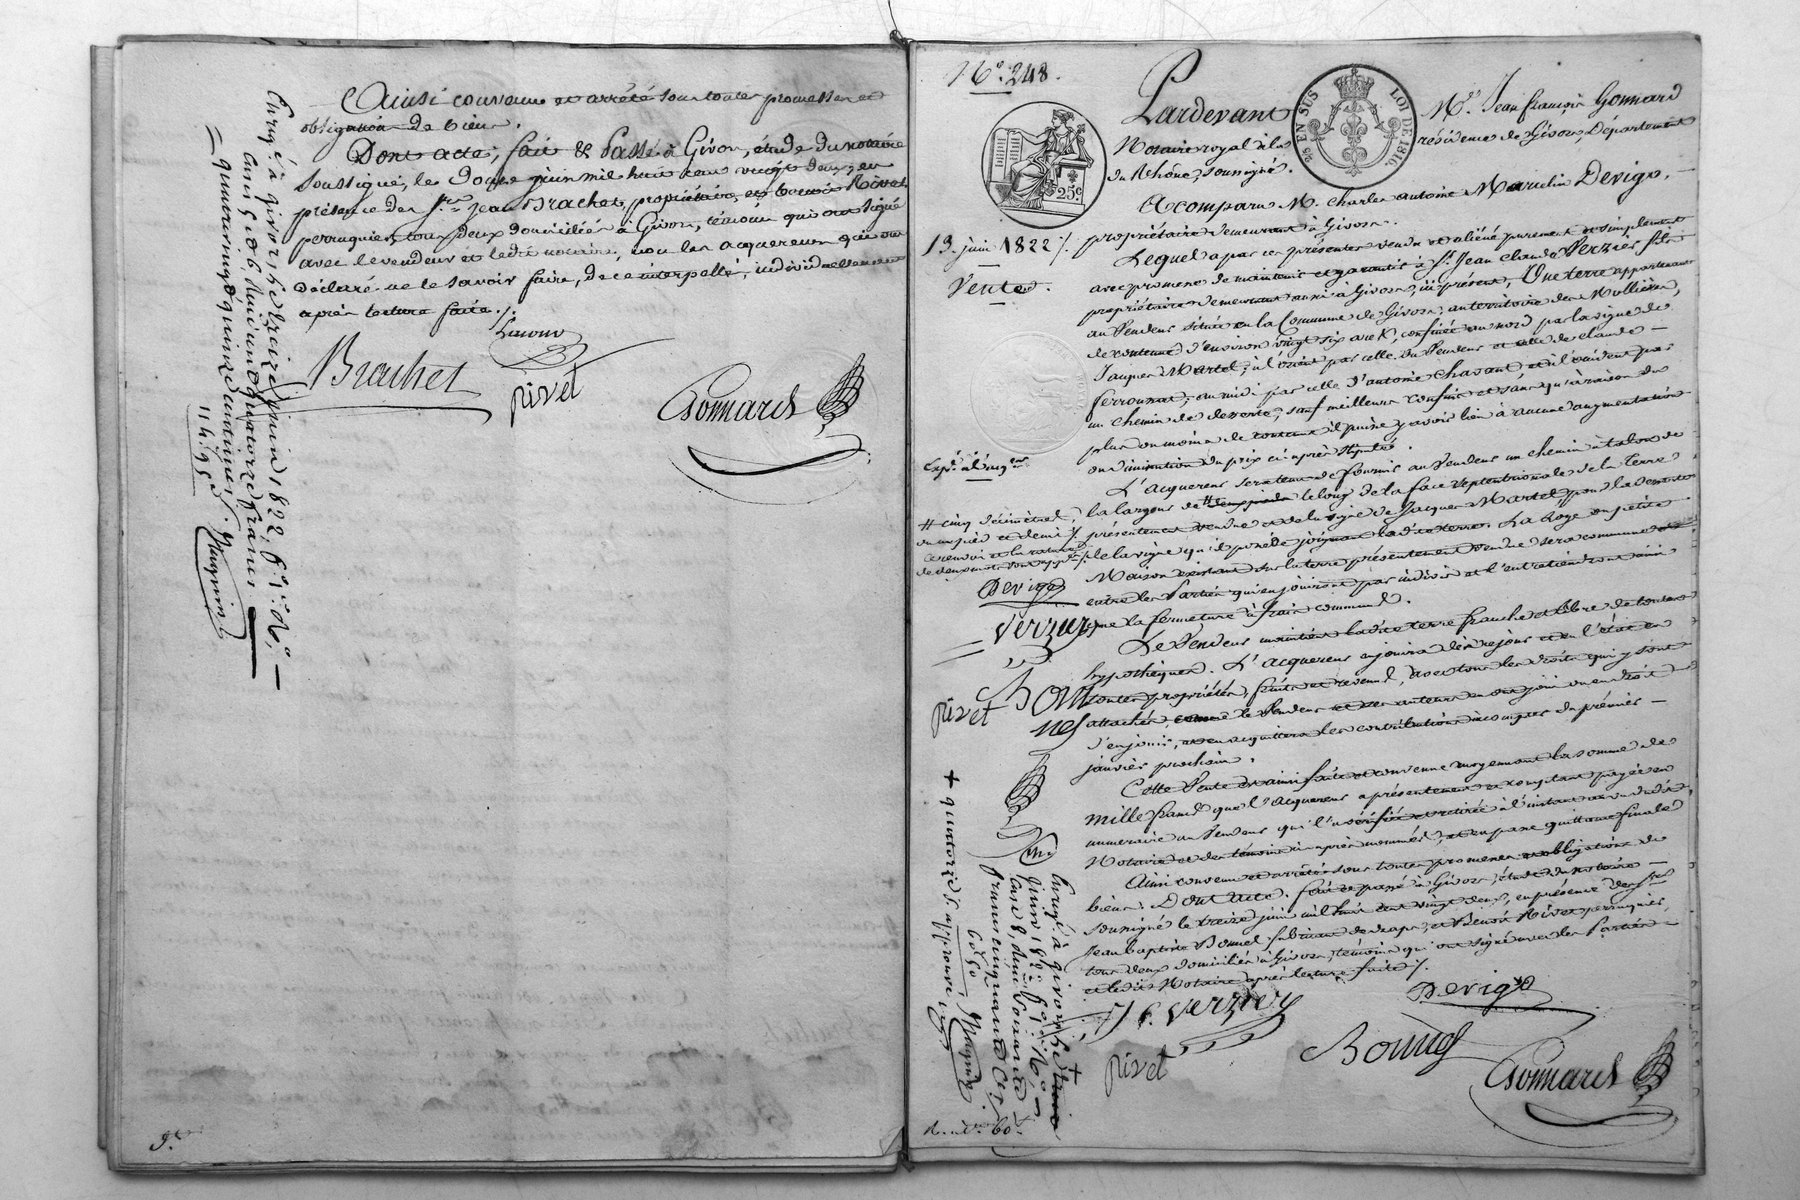 Ainsi convenu et arrêté sous toutes promesses et
obligation de biens.
Dont acte, fait & Passé à Givors, étude du notaire
soussigné, le douze juin mil huit cent vingt deux, en
présence des Srs Jean Brachet, propriétaire, et Benoit Rivet
perruquier, tous deux domiciliés à Givors, témoins qui ont signé
avec le vendeur et ledit notaire, non les acquereurs qui ont
déclaré ne le savoir faire, de ce interpellé, individuellement
après lecture faite ./.
Brachet
rivet
Gonnard
Enrgé à Givors le treize juin 1822, f° 1, r°, —
case 5 et 6, quatorze francs
= quatre vingt quinze centimes.
14.95c
9.
N° 248.
13. juin 1822 ./.
Vente.
25c.
25 EN SUS LOI DE 1816.
Pardevant Me Jean françois Gonnard
Notaire royal à la résidence de Givors, Département
du Rhône, soussigné.
A comparu M. Charles antoine Marcelin Devigo, —
propriétaire demeurant à Givors.
Lequel a par ces présentes vendu et aliéné purement et simplement
avec promesse de maintenir et garantir à Sr. Jean Claude Verzier fils
propriétaire demeurant aussi à Givors, ici présent, Une terre appartenant
au Vendeur située en la Commune de Givors, au territoire des
de contenue d'environ vingt six ares, confinée au nord par la vigne de
Jacques Martel; à l'orient par celle du Vendeur et celle de claude —
ferrounat; au midi par celle d'antoine Chavant et à l'occident par
un chemin de desserte, sauf meilleurs confins et sans qu'à raison du
plus ou moins de contenue il puisse y avoir lieu à aucune augmentation
ou diminution du prix ci après stipulé.
L'acquereur sera tenu de fournir au Vendeur un chemin à talon de
la largeur de # le long de la face septentrionale de la terre
présentement vendue et de la vigne de Jacques Martel, pour la desserte
de la vigne qu'il possède joignant ladite terre. La loge ou petite
Maison existant sur la terre présentement vendue sera commune
entre les Parties qui en jouiront par indivis et l'entretiendront ainsi
que la fermeture à frais communs.
# cinq décimètres,
ou un pied et demi ./.
ce renvoi et la rature
de deux mots sont app.
Devigo
Verzier
rivet
Bonnel
Le Vendeur maintient ladite terre franche et libre de toutes
hypothèques. L'acquereur en jouira dès ce jour et en l'état en
toutes propriétés, fruits et revenus, avec tous les droits qui y sont
attachés comme le Vendeur et ses auteurs en ont joui ou eu droit
d'en jouir, et en acquittera les contributions à compter du premier —
janvier prochain.
Cette Vente est ainsi faite et convenue moyennant la somme de
mille francs que l'acquereur a présentement et comptant payée en
numeraire au Vendeur qui l'a vérifiée et retirée à l'instant au vu dudit
Notaire et des témoins ci après nommés, et en passe quittance finale
Ainsi convenu et arrêté sous toutes promesses et obligations de
biens. Dont Acte. fait et passé à Givors, étude du notaire —
soussigné le treize juin mil huit cent vingt deux, en présence des Srs
Jean baptiste Bonnel fabricant de draps, et Benoit Rivet perruquier,
tous deux domiciliés à Givors, témoins qui ont signé avec les Parties
et ledit Notaire après lecture faite ./.
J C. Verzier
Devigo
rivet
Bonnel
Gonnard
Enrgé à Givors le
juin 1822 f° 1
case 8, reçu soixante
francs cinquante cent.
60f 50.
+ quatorze